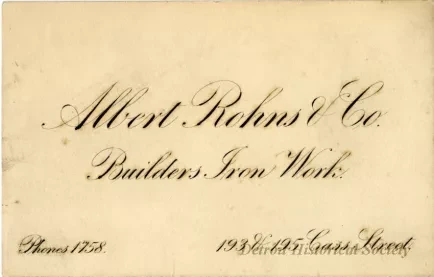 Albert Rohns & Co.
Builders Iron Work.
Phones 1758. 193 & 195 Cass Street.
Detroit Historical Society